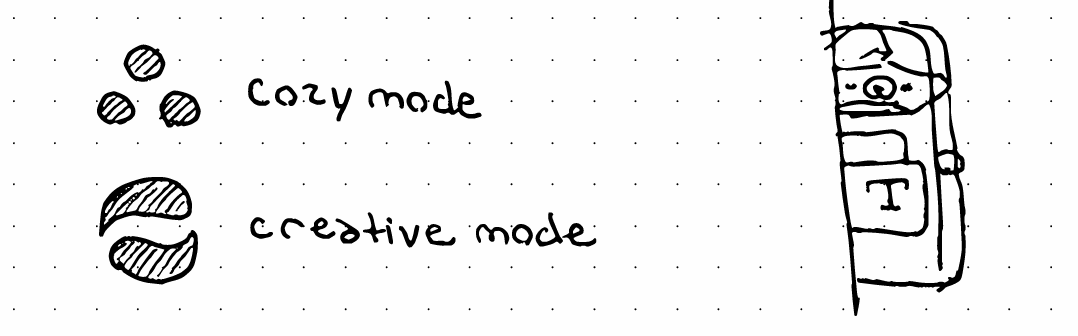 cozy mode
creative mode
T